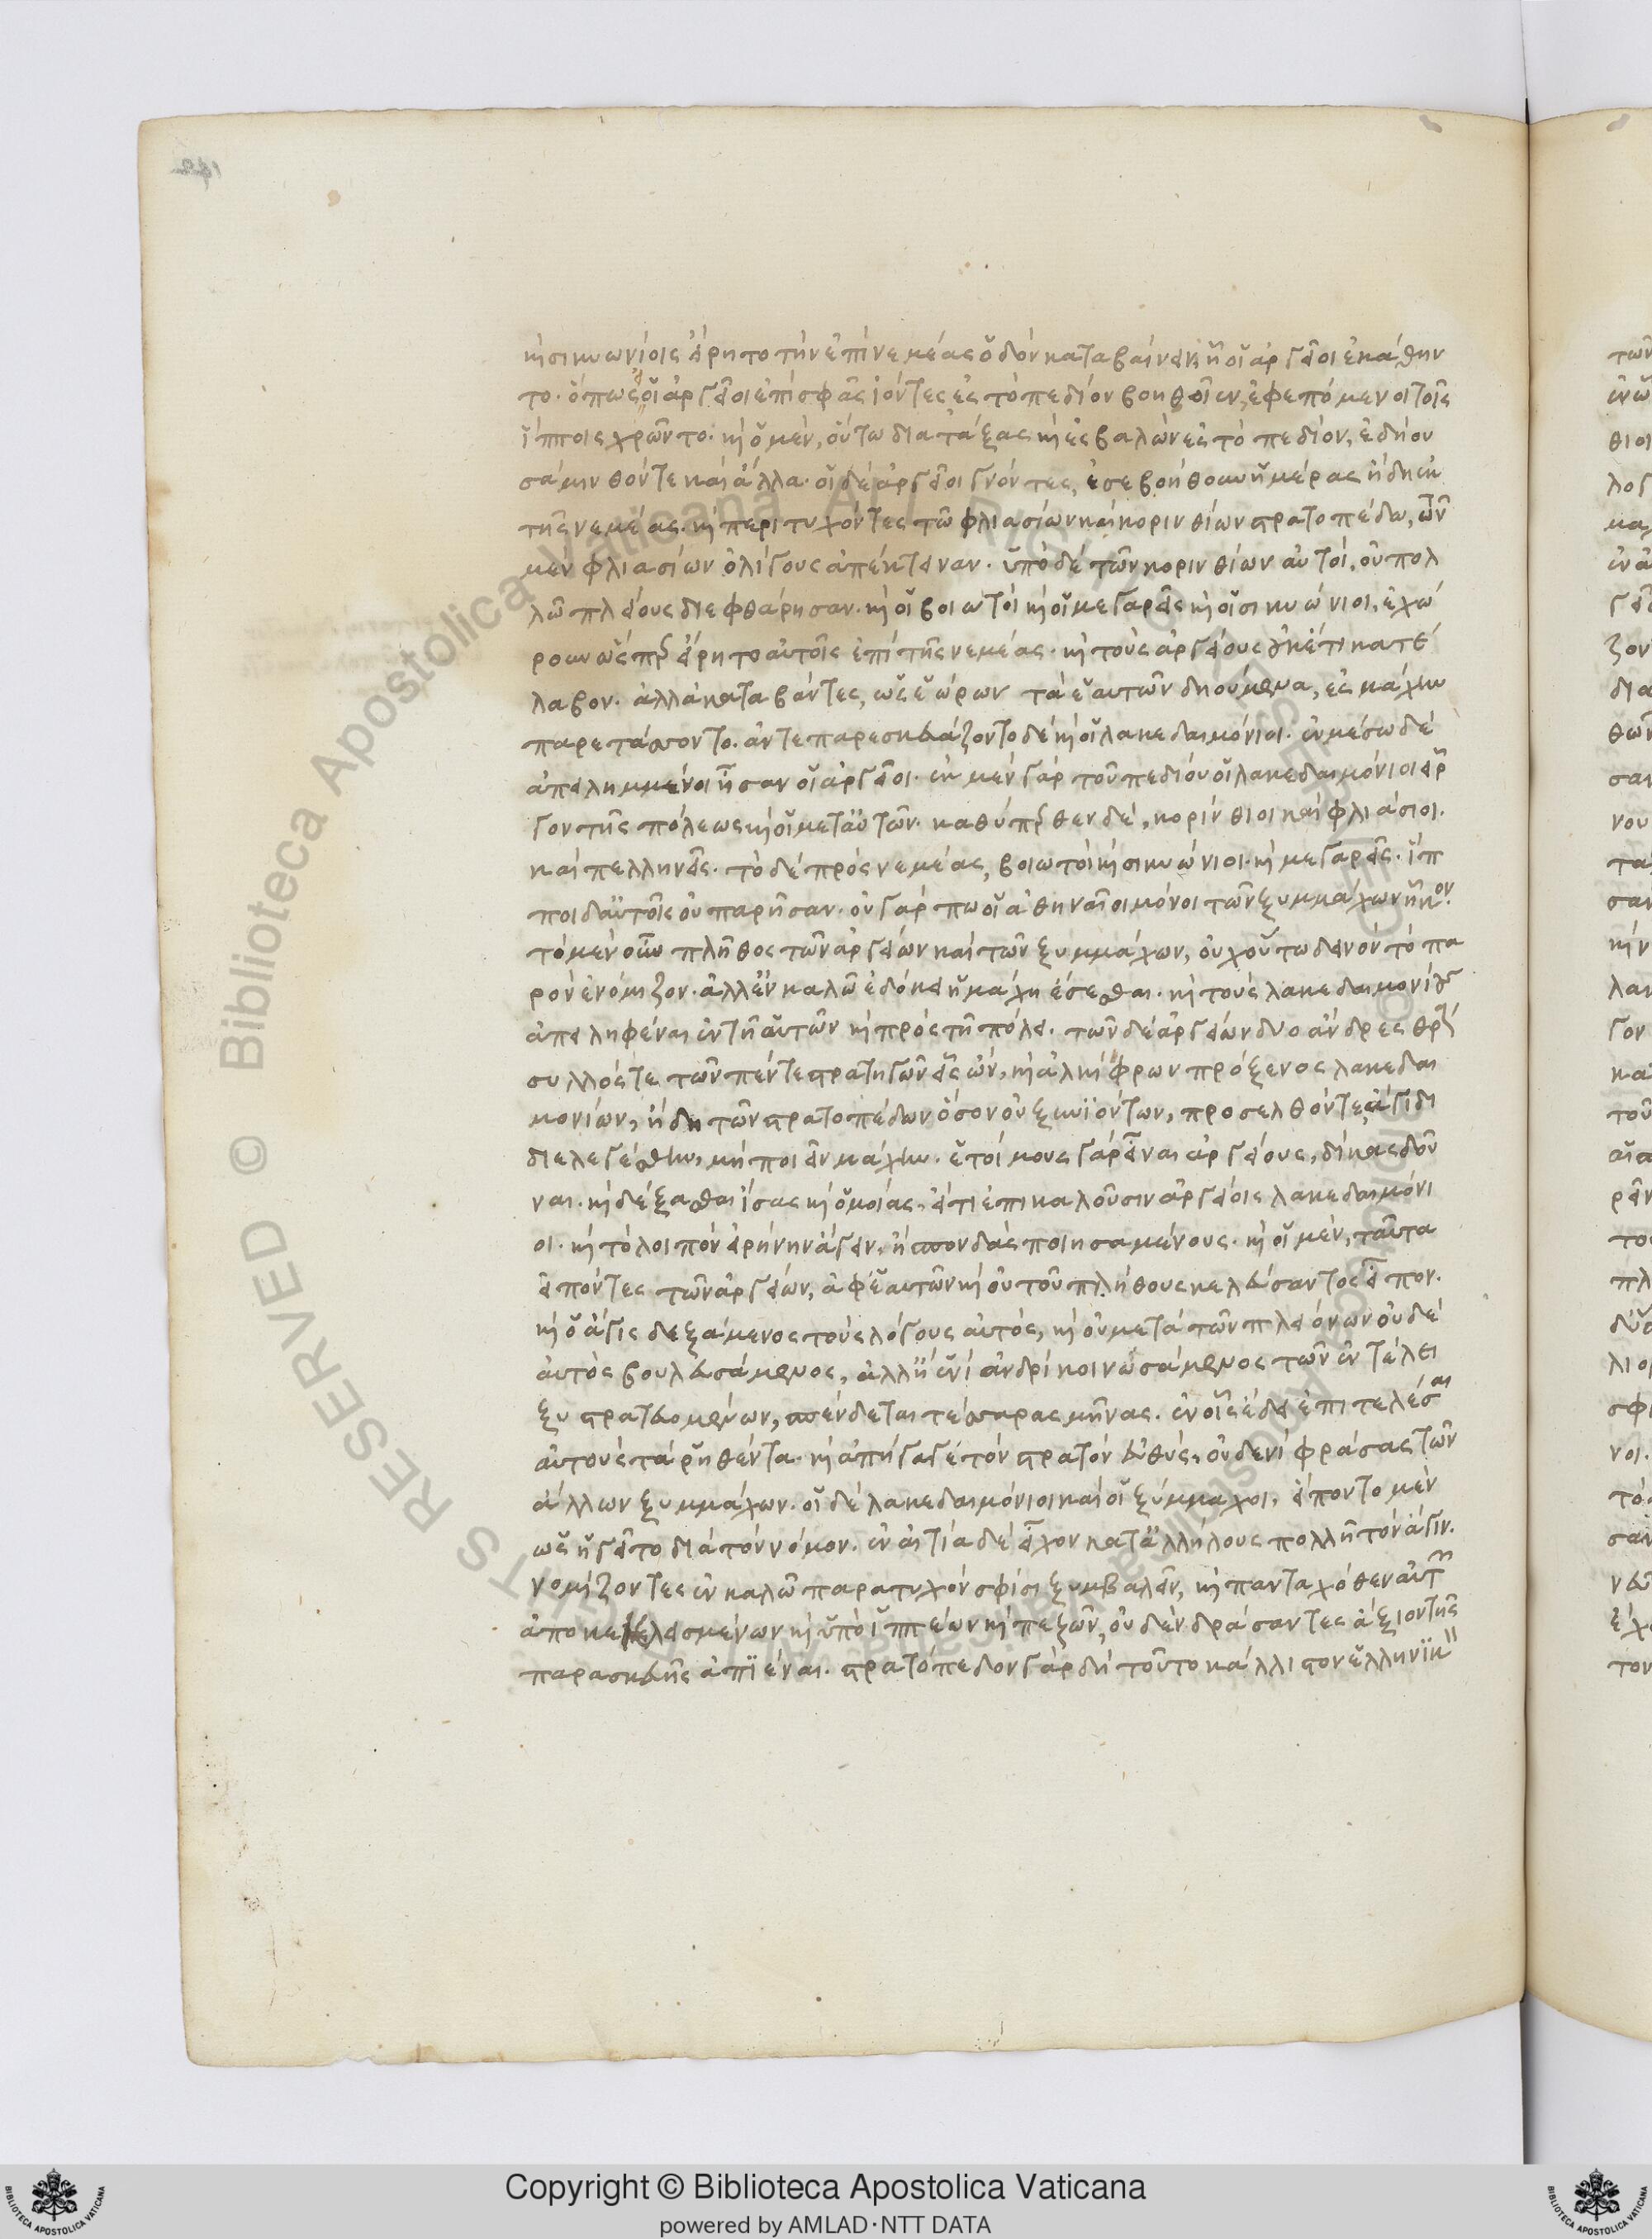 καὶ σικυωνίοις εἴρητο τὴν ἐπὶ νεμέας ὁδὸν καταβαίνειν ᾗ οἱ ἀργεῖοι ἐκάθην
το. ὅπως οἱ ἀργεῖοι ἐπὶ σφᾶς ἰόντες ἐς τὸ πεδίον βοηθοῖεν, ἐφεπόμενοι τοῖς
ἵπποις χρῶντο. καὶ ὁ μὲν, οὕτω διατάξας καὶ ἐσβαλὼν ἐς τὸ πεδίον, ἐδῄου
σάμινθόν τε καὶ ἄλλα. οἱ δὲ ἀργεῖοι γνόντες, ἐσεβοήθουν ἡμέρας ἤδη ἐκ
τῆς νεμέας. καὶ περιτυχόντες τῶ φλιασίων καὶ κορινθίων στρατοπέδω, τῶν
μὲν φλιασίων ὀλίγους ἀπέκτειναν. ὑπὸ δὲ τῶν κορινθίων αὐτοὶ, οὐ πολ
λῶ πλείους διεφθάρησαν. καὶ οἱ βοιωτοὶ καὶ οἱ μεγαρεῖς καὶ οἱ σικυώνιοι, ἐχώ
ρουν ὥσπερ εἴρητο αὐτοῖς ἐπὶ τῆς νεμέας. καὶ τοὺς ἀργείους οὐκέτι κατέ
λαβον. ἀλλὰ καταβάντες, ὡς ἑώρων τὰ ἑαυτῶν δῃούμενα, ἐς μάχην
παρετάσσοντο. ἀντιπαρεσκευάζοντο δὲ καὶ οἱ λακεδαιμόνιοι. ἐν μέσω δὲ
ἀπειλημμένοι ἦσαν οἱ ἀργεῖοι. ἐκ μὲν γὰρ τοῦ πεδίου οἱ λακεδαιμόνιοι εἶρ
γον τῆς πόλεως καὶ οἱ μετ' αὐτῶν. καθύπερθεν δὲ, κορίνθιοι καὶ φλιάσιοι.
καὶ πελληνεῖς. τὸ δὲ πρὸς νεμέας, βοιωτοὶ καὶ σικυώνιοι. καὶ μεγαρεῖς. ἵπ
ποι δ' αὐτοῖς οὐ παρῆσαν. οὐ γάρ πω οἱ ἀθηναῖοι μόνοι τῶν ξυμμάχων ἧκον.
τὸ μὲν οὖν πλῆθος τῶν ἀργείων καὶ τῶν ξυμμάχων, οὐχ οὕτω δεινὸν τὸ πα
ρὸν ἐνόμιζον. ἀλλ' ἐν καλῶ ἐδόκει ἡ μάχη ἔσεσθαι. καὶ τοὺς λακεδαιμονίους
ἀπειληφέναι ἐν τῆ αὑτῶν καὶ πρὸς τῆ πόλει. τῶν δὲ ἀργείων δύο ἄνδρες θρά
συλλός τε τῶν πέντε στρατηγῶν εἷς ὢν, καὶ ἀλκίφρων πρόξενος λακεδαι
μονίων, ἤδη τῶν στρατοπέδων ὅσον οὐ ξυνιόντων, προσελθόντες ἄγιδι
διελεγέσθην, μὴ ποιεῖν μάχην. ἑτοίμους γὰρ εἶναι ἀργείους, δίκας δοῦ
ναι. καὶ δέξασθαι ἴσας καὶ ὁμοίας, εἴ τι ἐπικαλοῦσιν ἀργείοις λακεδαιμόνι
οι. καὶ τὸ λοιπὸν εἰρήνην ἄγειν, ἢ σπονδὰς ποιησαμένους. καὶ οἱ μὲν, ταῦτα
εἰπόντες τῶν ἀργείων, ἀφ' ἑαυτῶν καὶ οὐ τοῦ πλήθους κελεύσαντος εἶπον.
καὶ ὁ ἆγις δεξάμενος τοὺς λόγους αὐτὸς, καὶ οὐ μετὰ τῶν πλειόνων οὐδὲ
αὐτὸς βουλευσάμενος, ἀλλ' ἢ ἑνὶ ἀνδρὶ κοινωσάμενος τῶν ἐν τέλει
ξυστρατευομένων, σπένδεται τέσσαρας μῆνας. ἐν οἷς ἔδει ἐπιτελέσαι
αὐτοὺς τὰ ῥηθέντα. καὶ ἀπήγαγε τὸν στρατὸν εὐθὺς, οὐδενὶ φράσας τῶν
ἄλλων ξυμμάχων. οἱ δὲ λακεδαιμόνιοι καὶ οἱ ξύμμαχοι, εἵποντο μὲν
ὡς ἡγεῖτο διὰ τὸν νόμον. ἐν αἰτία δὲ εἶχον κατ' ἀλλήλους πολλῆ τὸν ἆγιν.
νομίζοντες ἐν καλῶ παρατυχὸν σφίσι ξυμβαλεῖν, καὶ πανταχόθεν αὐτῶν
ἀποκεκλεισμένων καὶ ὑπὸ ἱππέων καὶ πεζῶν, οὐδὲν δράσαντες ἄξιον τῆς
παρασκευῆς ἀπιέναι. στρατόπεδον γὰρ δὴ τοῦτο κάλλιστον ἑλληνικὸν
Copyright © Biblioteca Apostolica Vaticana
powered by AMLAD·NTT DATA